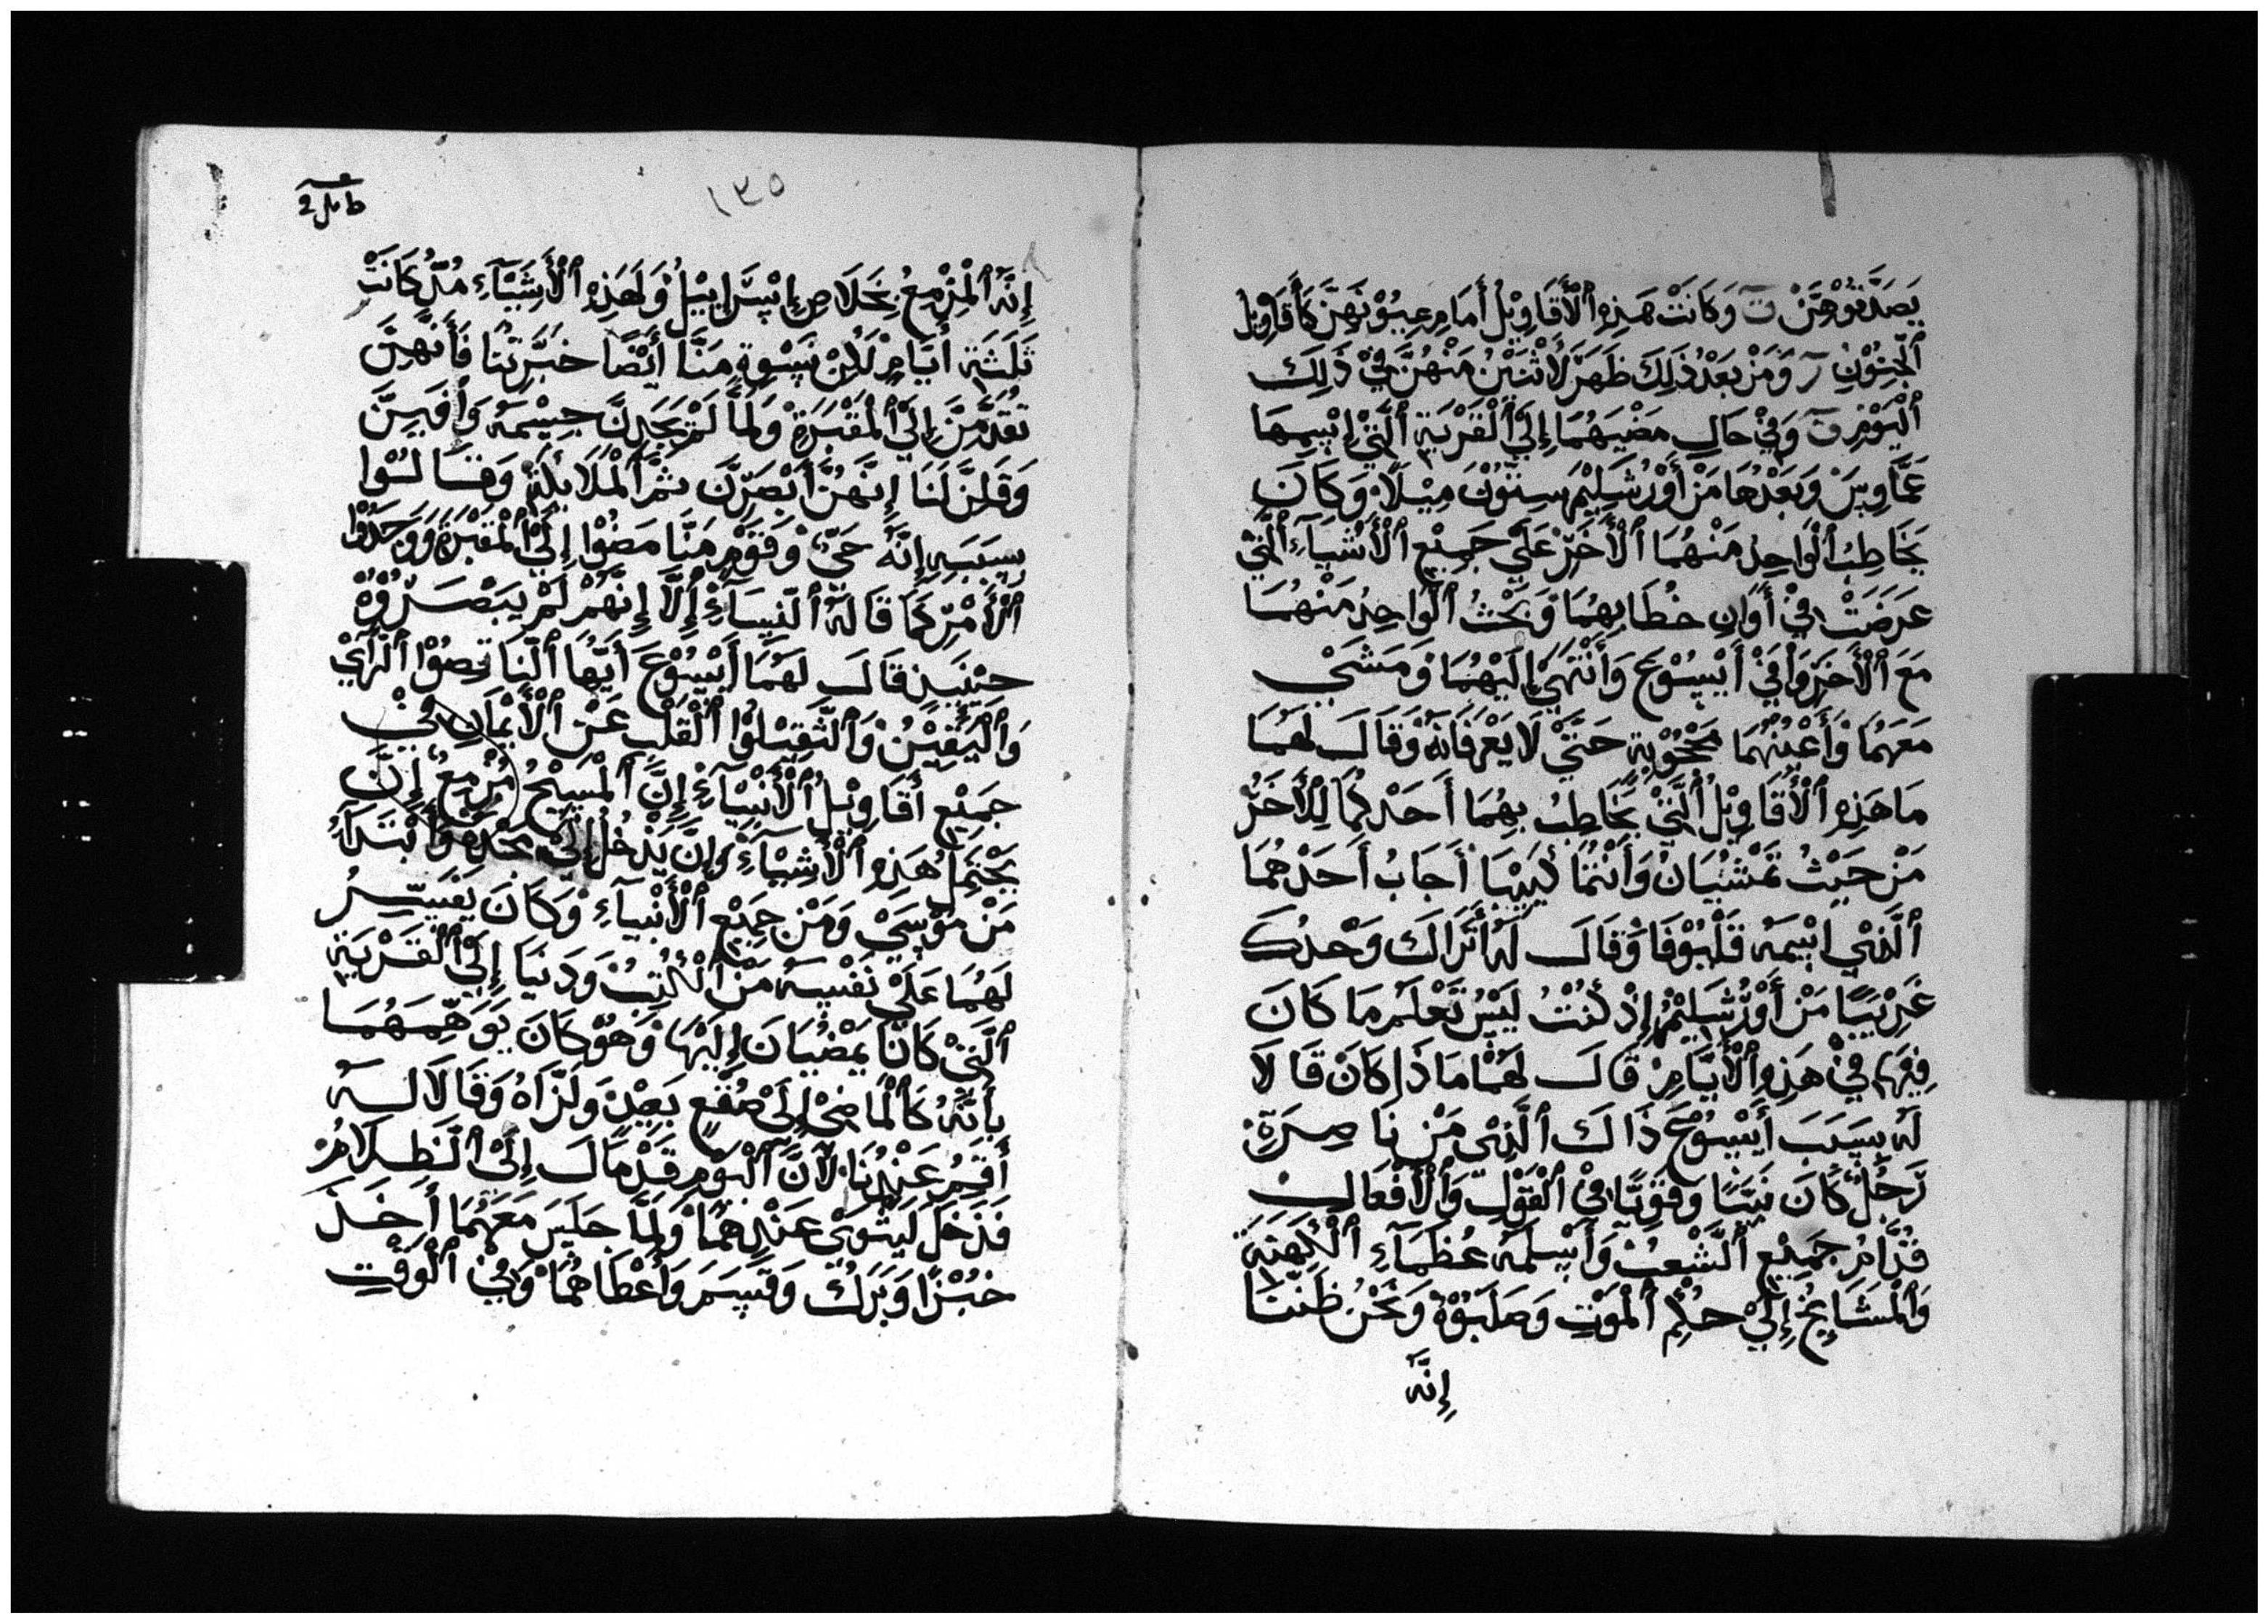 يَصَدَّقوْهنَّ وَكَانَتْ هَذِهِ ٱلْأَقَاوِيْلُ أَمَامِ عِيُوْنِهِنَّ كَأَقَاوِيْل
ٱلْجنُوْنِ وَمَنْ بَعْدْ ذَلِكَ ظَهَرَ لَاثْنَيْنُ مَنْهُنَّ فِيْ ذَلِكَ
ٱلْيَوْمِ وَفِيْ حَالِ مَضْيَهُمَا إِلَيْ ٱلْقَرْيَةِ ٱلَّتِيْ اِسْمِهَا
عَمَّاوِسَ وَبَعْدُهَا مَنْ أَوْرُشَلِيْمَ سِتُّوْنَ مِيْلًا وَكَانَ
يَخَاطِبُ ٱلْوَاحِدْ مَنْهُمَا ٱلْأَخَرْ عَلَيْ جَمِيْع ٱلْأَشْيَآءِ ٱلَّتِيْ
عَرَضَتْ فِيْ أَوَانِ خطَابِهِمَا وَبَحْثُ ٱلْوَاحِدُ مَنْهُمَا
مَعَ ٱلْأَخَرْ وَافَيْ أَيْسُوْعَ وَأَنْتَهَيْ إِلَيْهُمَا وَمَشَيْ
مَعَهُمَا وَأَعْيُنُهُمَا مَحْجُوْبَة حَتَّيْ لَا يَعْرِفَانَهُ وَقَالَ لَهُمَا
مَا هَذِهِ ٱلْأَقَاوِيْلُ ٱلَّتِيْ يَخَاطِبُ بِهِمَا أَحَدْكُمَا لِلْأَخَرْ
مَنْ حَيْثُ تَمْشيَانُ وَأَنْتُمَا كَيِيْبَا أَجَابُ أَحَدْهُمَا
ٱلَّذِيْ اِسْمَهُ قَلْيُوْفَا وَقَالَ لَهُ أَتَرَاكَ وَحْدُكَ
غَرِيْبًا مَنْ أَوْرُشَلِيْمَ إِذْ كُنْتُ لَيْسُ تَعْلَمُ مَا كَانَ
فِيْهَا فِيْ هَذِهِ ٱلْأَيَّامِ قَالَ لَهُمَا مَا ذَا كَانَ قَالَا
لَهُ بِسَبَبَ أَيْسُوْعَ ذَاكَ ٱلَّذِيْ مَنْ نَاصِرَةِ
رَجُلٌ كَانَ نَبِيًّا وَقَوِيًّا فِيْ ٱلْقَوْلِ وَٱلْأَفْعَالِ
قُدَّامُ جَمِيْعِ ٱلشَّعْبْ وَأَسْلَمَهُ عُظَمَآءِ ٱلْكَهَنَةِ
وَٱلْمَشَايِخْ إِلَيْ حكْمِ ٱلْمَوْتِ وَصَلَبُوْهُ وَنَحْنُ ظَنَنَّا
إِنَّهُ
١٣٥
إِنَّهُ ٱلْمزْمِعُ بِخَلَاصِ إِسْرَإِيْلُ وَلِهَذِهِ ٱلْأَشْيَآءِ مُذْ كَانَتْ
ثَلَثَة أَيَّامٍ لَكِنْ نِسْوِةٍ مَنَّا أَيْضًا خَبَّرِتْنَا فَأَنَّهِنَّ
تَقَدَّمَنَ إِلَيْ ٱلْمَقْبَرَةِ وَلَمَّا لَمْ يَجَدِنَّ جِسْمَهُ وَافَيِنَّ
وَقَلِنَ لَنَا إِنَّهُنَّ أَبْصَرِنَّ ثمَّ ٱلْمَلَايِكَةِ وَقَالُوْا
بِسَبَبِهِ إِنَّهُ حَيٌّ وَقَوْمٍ مَنَّا مَضُوْا إِلَيْ ٱلْمَقْبَرَةِ وَوَجَدُوْا
ٱلْأَمْرِ كَمَا قَالَهُ ٱلنِّسَآءِ إِلَّا إِنَّهُمْ لَمْ يَبْصَرُوْهُ
حِيْنَيِذٍ قَالَ لَهُمَا أَيْسُوْعَ أَيُّهَا ٱلنَّاقِصُوْا ٱلْرَأَيْ
وَٱلْيَقِيْنُ وَٱلثَّقِيْلُوْا ٱلْقَلْبِ عَنْ ٱلْأَيْمَانِ فِيْ
جَمِيْع أَقَاوِيْلُ ٱلْأَنْبِيَآءِ إِنَّ ٱلْمَسِيْحُ مُزْمِعٌ إِنَّ
يَحْتَمِلُ هَذِهِ ٱلْأَشْيَآءِ وَإِنَّ يَدْخُلُ إِلَيْ مَجْدِهِ وَأَبْتَدَأَ
مَنْ مُوْسَيْ وَمَنْ جَمِيْعِ ٱلْأَنْبِيَآءِ وَكَانَ يَفَسِّرُ
لَهُمَا عَلَيْ نَفْسِهُ مَنْ ٱلْكُتُبْ وَدَنَيَا إِلَيْ ٱلْقَرْيَةِ
ٱلَّتِيْ كَانَا يَمْضيَانَ إِلَيْهَا وَهوْ كَانَ يوَهِّمَهُمَا
بِأَنَّهُ كَٱلْمَاضِيْ إِلَيْ صُقْعٍ بَعِيْدْ وَلَزَّاهُ وَقَالَا لَهُ
أَقِيْمُ عَنْدُنَا لِأَنَّ ٱلْيَوْمِ قَدْ مَالَ إِلَيْ ٱلظَّلَامُ
فَدَخَلَ لَيَثْوَيْ عَنْدِهِمَا وَلَمَّا جَلَسَ مَعَهُمَا أَخَذَ
خُبْزًا وَبَرَكُ وَقَسَمَ وَأَعْطَاهُمَا وَفِيْ ٱلْوَقْتِ